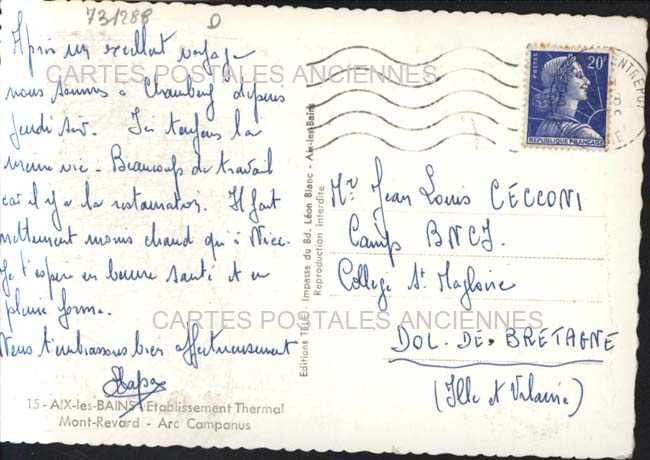 731288
D
Après un excellent voyage
nous sommes à Chambéry depuis
jeudi soir. Ici toujours la
même vie. Beaucoup de travail
car il y a la restauration. Il fait
nettement moins chaud qu'à Nice.
Je t'espère en bonne santé et en
pleine forme.
Nous t'embrassons bien affectueusement
15 - AIX-les-BAINS - Etablissement Thermal
Mont-Revard - Arc Campanus
Editions TELE - Impasse du Bd. Léon Blanc - Aix-les-Bains
Reproduction interdite
POSTES 20F
REPUBLIQUE FRANÇAISE
ENTREPOT
Mr Jean Louis CECCONI
Camp BNCI.
College St Magloire
DOL-DE-BRETAGNE
(Ille et Vilaine)
CARTES POSTALES ANCIENNES
CARTES POSTALES ANCIENNES